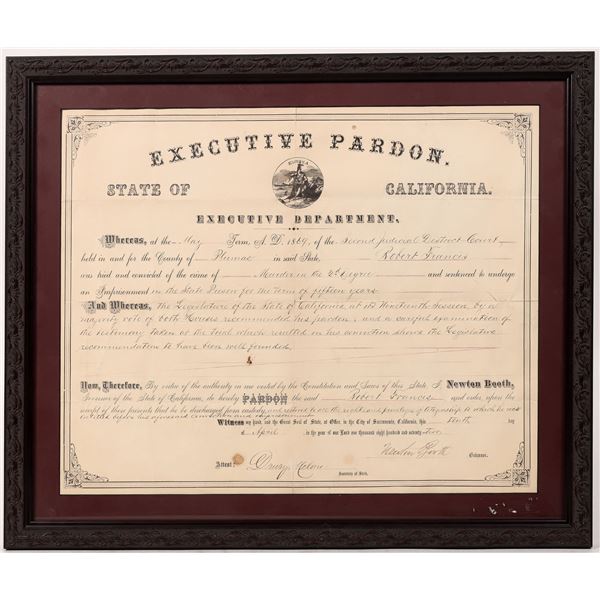 EXECUTIVE PARDON.
EUREKA
STATE OF CALIFORNIA.
EXECUTIVE DEPARTMENT,
Whereas, at the May Term, A. D. 1869, of the Second Judicial District Court
held in and for the County of Plumas in said State, Robert Francis
was tried and convicted of the crime of Murder in the 2d degree and sentenced to undergo
an Imprisonment in the State Prison for the term of fifteen years
And Whereas, the Legislature of the State of California at its Nineteenth Session by a
majority vote of both Houses recommended his pardon, and a careful examination of
the testimony taken at the trial which resulted in his conviction shows the Legislative
recommendation to have been well founded.
Now, Therefore, By virtue of the authority in me vested by the Constitution and Laws of this State, I, Newton Booth,
Governor of the State of California, do hereby PARDON the said Robert Francis and order, upon the
receipt of these presents that he be discharged from custody and restored to all the rights and privileges of citizenship to which he was
entitled before his
Witness my hand, and the Great Seal of State, at Office, in the City of Sacramento, California, this Tenth day
of April in the year of our Lord one thousand eight hundred and seventy-two.
Newton Booth
Governor.
Attest: Drury Melone
Secretary of State.